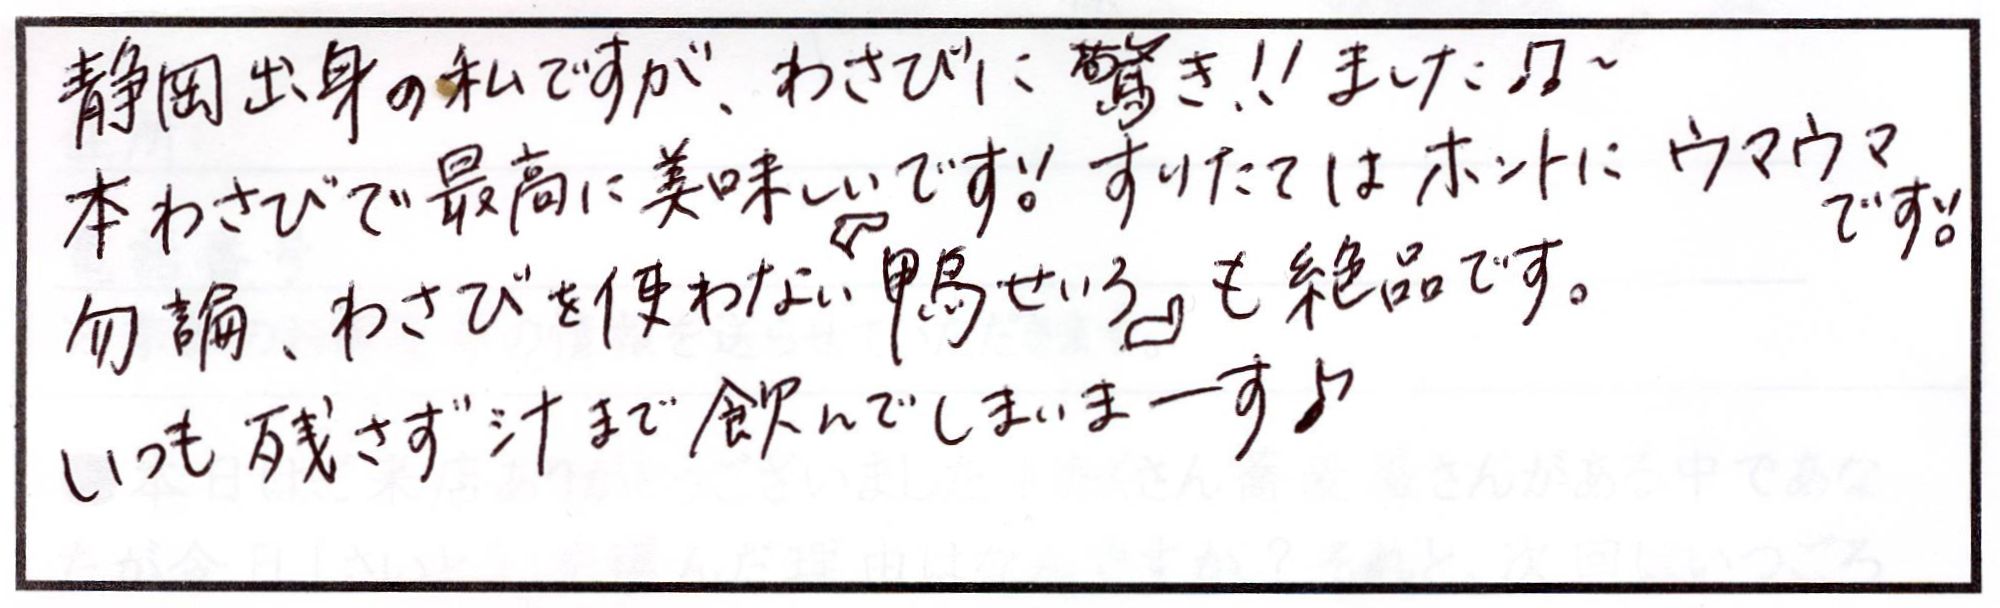 静岡出身の私ですが、わさびに驚き!!ました♫~
本わさびで最高に美味しいです!! すりたてはホントにウマウマです!!
勿論、わさびを使わない『鴨せいろ』も絶品です。
いつも残さず汁まで飲んでしまいまーす♪